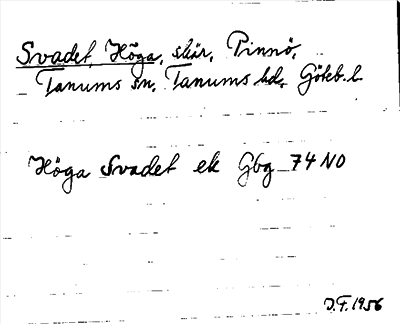 Svadet, Höga, skär, Pinnö,
Tanums sn, Tanums hd, Göteb. l.
Höga Svadet ek Gbg 74 NO
D.F. 1956